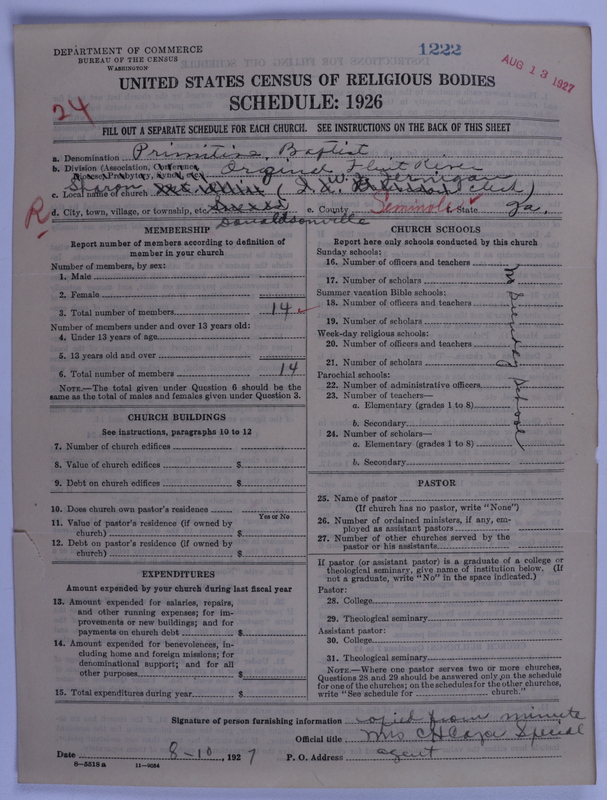 DEPARTMENT OF COMMERCE
BUREAU OF THE CENSUS
WASHINGTON
1222
AUG 13 1927
UNITED STATES CENSUS OF RELIGIOUS BODIES
SCHEDULE: 1926
24
FILL OUT A SEPARATE SCHEDULE FOR EACH CHURCH. SEE INSTRUCTIONS ON THE BACK OF THIS SHEET
a. Denomination Primitive Baptist
b. Division (Association, Conference, Diocese, Presbytery, Synod, etc.) Flint River
c. Local name of church Sharon (W. Jernigan Clerk)
R
d. City, town, village, or township, etc. Donaldsonville e. County Seminole State Ga.
MEMBERSHIP
Report number of members according to definition of
member in your church
Number of members, by sex:
1. Male
2. Female
3. Total number of members 14
Number of members under and over 13 years old:
4. Under 13 years of age
5. 13 years old and over
6. Total number of members 14
NOTE.—The total given under Question 6 should be the
same as the total of males and females given under Question 3.
CHURCH BUILDINGS
See instructions, paragraphs 10 to 12
7. Number of church edifices
8. Value of church edifices $
9. Debt on church edifices $
10. Does church own pastor's residence
Yes or No
11. Value of pastor's residence (if owned by
church) $
12. Debt on pastor's residence (if owned by
church) $
EXPENDITURES
Amount expended by your church during last fiscal year
13. Amount expended for salaries, repairs,
and other running expenses; for im-
provements or new buildings; and for
payments on church debt $
14. Amount expended for benevolences, in-
cluding home and foreign missions; for
denominational support; and for all
other purposes $
15. Total expenditures during year $
CHURCH SCHOOLS
Report here only schools conducted by this church
Sunday schools:
16. Number of officers and teachers
17. Number of scholars
Summer vacation Bible schools:
18. Number of officers and teachers
19. Number of scholars
Week-day religious schools:
20. Number of officers and teachers
21. Number of scholars
Parochial schools:
22. Number of administrative officers
23. Number of teachers—
a. Elementary (grades 1 to 8)
b. Secondary
24. Number of scholars—
a. Elementary (grades 1 to 8)
b. Secondary
No Sunday School
PASTOR
25. Name of pastor
(If church has no pastor, write "None")
26. Number of ordained ministers, if any, em-
ployed as assistant pastors
27. Number of other churches served by the
pastor or his assistants
If pastor (or assistant pastor) is a graduate of a college or
theological seminary, give name of institution below. (If
not a graduate, write "No" in the space indicated.)
Pastor:
28. College
29. Theological seminary
Assistant pastor:
30. College
31. Theological seminary
NOTE.—Where one pastor serves two or more churches,
Questions 28 and 29 should be answered only on the schedule
for one of the churches; on the schedules for the other churches,
write "See schedule for church."
Signature of person furnishing information copied from minute
Official title Mrs Special
Date 8-10, 1927 P. O. Address agent
8—5518 a 11—9064